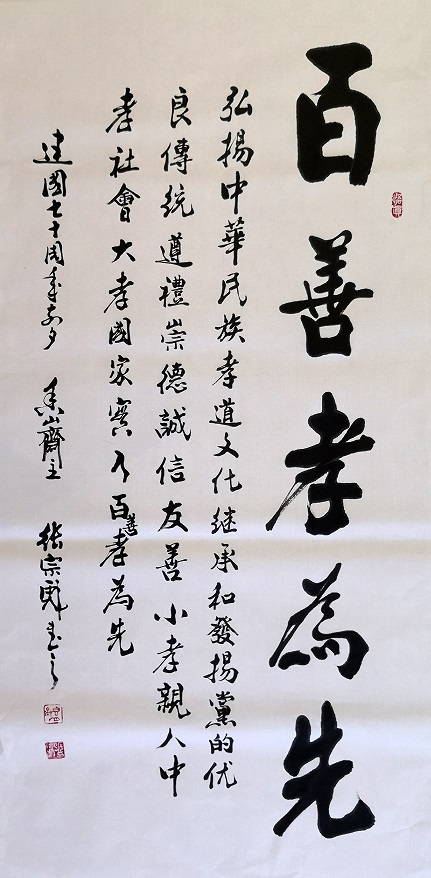 百善孝為先
弘揚中華民族孝道文化继承和發揚黨的优
良傳統遵禮崇德誠信友善小孝親人中
孝社會大孝國家實乃百善孝為先
建國七十周年前夕 香山齋主 张宗彪书之